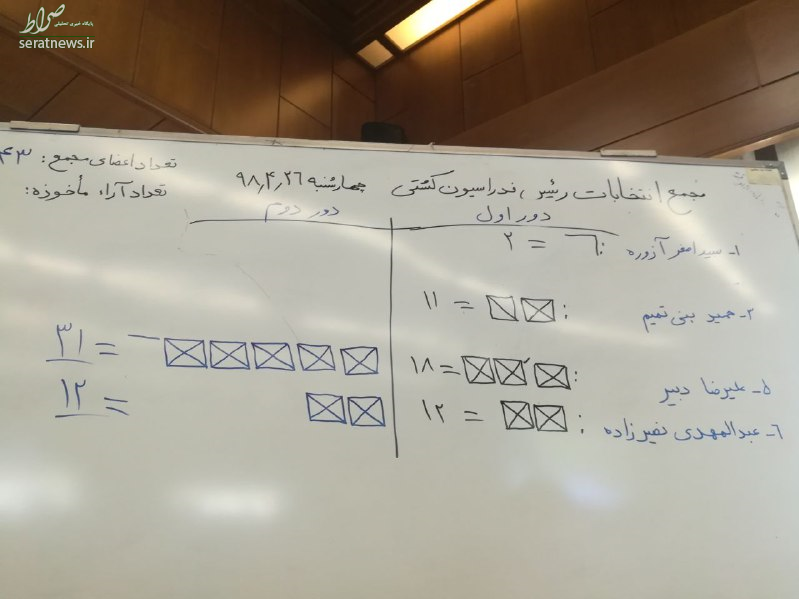 صراط
پایگاه خبری تحلیلی
seratnews.ir
مجمع انتخابات رئیس فدراسیون کشتی چهارشنبه ۹۸,۴,۲۶
تعداد اعضای مجمع: ۴۳
تعداد آراء مأخوذه:
دور اول
دور دوم
۱- سید امیر آزوره : = ۲
۲- حمید بنی تمیم : = ۱۱
۵- علیرضا دبیر : = ۱۸
= ۳۱
۶- عبدالمهدی نصیرزاده : = ۱۲
= ۱۲